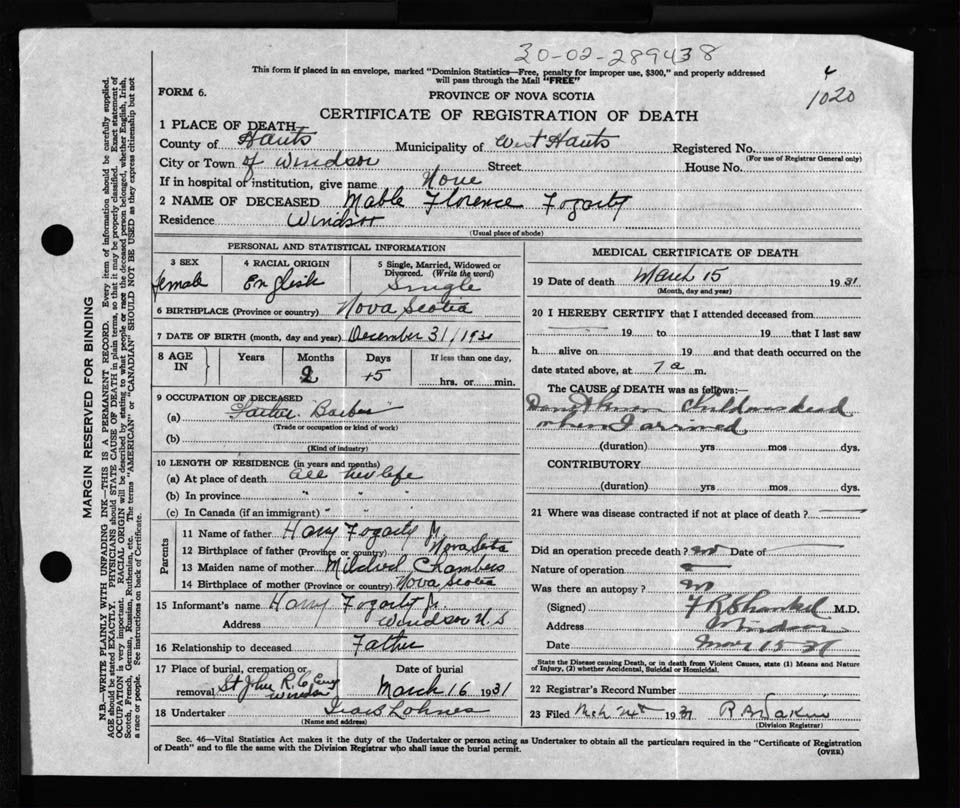 30-02-289438
This form if placed in an envelope, marked "Dominion Statistics—Free, penalty for improper use, $300," and properly addressed
will pass through the Mail "FREE"
4
1020
FORM 6.
PROVINCE OF NOVA SCOTIA
CERTIFICATE OF REGISTRATION OF DEATH
1 PLACE OF DEATH
County of Hants Municipality of West Hants Registered No.
(For use of Registrar General only)
City or Town of Windsor Street House No.
If in hospital or institution, give name None
2 NAME OF DECEASED Mable Florence Fogarty
Residence Windsor
(Usual place of abode)
PERSONAL AND STATISTICAL INFORMATION
3 SEX 4 RACIAL ORIGIN 5 Single, Married, Widowed or
Divorced. (Write the word)
female English Single
6 BIRTHPLACE (Province or country) Nova Scotia
7 DATE OF BIRTH (month, day and year) December 31/1930
8 AGE IN Years Months Days If less than one day,
2 15 hrs. or min.
9 OCCUPATION OF DECEASED
(a) Father "Barber"
(Trade or occupation or kind of work)
(b)
(Kind of industry)
10 LENGTH OF RESIDENCE (in years and months)
(a) At place of death all her life
(b) In province " "
(c) In Canada (if an immigrant) " "
Parents
11 Name of father Harry Fogarty Jr.
12 Birthplace of father (Province or country) Nova Scotia
13 Maiden name of mother Mildred Chambers
14 Birthplace of mother (Province or country) Nova Scotia
15 Informant's name Harry Fogarty Jr.
Address Windsor N.S
16 Relationship to deceased Father
17 Place of burial, cremation or removal St John R.C. Windsor
Date of burial
March 16 1931
18 Undertaker Lohnes
(Name and address)
MEDICAL CERTIFICATE OF DEATH
19 Date of death March 15 1931
(Month, day and year)
20 I HEREBY CERTIFY that I attended deceased from
19 to 19 that I last saw
h alive on 19 and that death occurred on the
date stated above, at 7 a m.
The CAUSE OF DEATH was as follows:—
Don't know Child was dead
when I arrived
(duration) yrs mos dys.
CONTRIBUTORY
(duration) yrs mos dys.
21 Where was disease contracted if not at place of death?
Did an operation precede death? no Date of
Nature of operation
Was there an autopsy? no
(Signed) F R Shankel M.D.
Address Windsor
Date Mar 15 31
State the Disease causing Death, or in death from Violent Causes, state (1) Means and Nature
of Injury, (2) whether Accidental, Suicidal or Homicidal.
22 Registrar's Record Number
23 Filed Mch 24th 1931 R A Dakin
(Division Registrar)
Sec. 46—Vital Statistics Act makes it the duty of the Undertaker or person acting as Undertaker to obtain all the particulars required in the "Certificate of Registration
of Death" and to file the same with the Division Registrar who shall issue the burial permit.
(OVER)
MARGIN RESERVED FOR BINDING
N.B.—WRITE PLAINLY WITH UNFADING INK—THIS IS A PERMANENT RECORD. Every item of information should be carefully supplied.
AGE should be stated EXACTLY. PHYSICIANS should STATE CAUSE OF DEATH in plain terms, so that it may be properly classified. Exact statement of
OCCUPATION is very important. RACIAL ORIGIN will be described by stating to what people or race the deceased person belonged, whether English, Irish,
Scotch, French, German, Russian, Ruthenian, etc. The terms "AMERICAN" or "CANADIAN" SHOULD NOT BE USED as they express citizenship but not
a race or people. See instructions on back of Certificate.